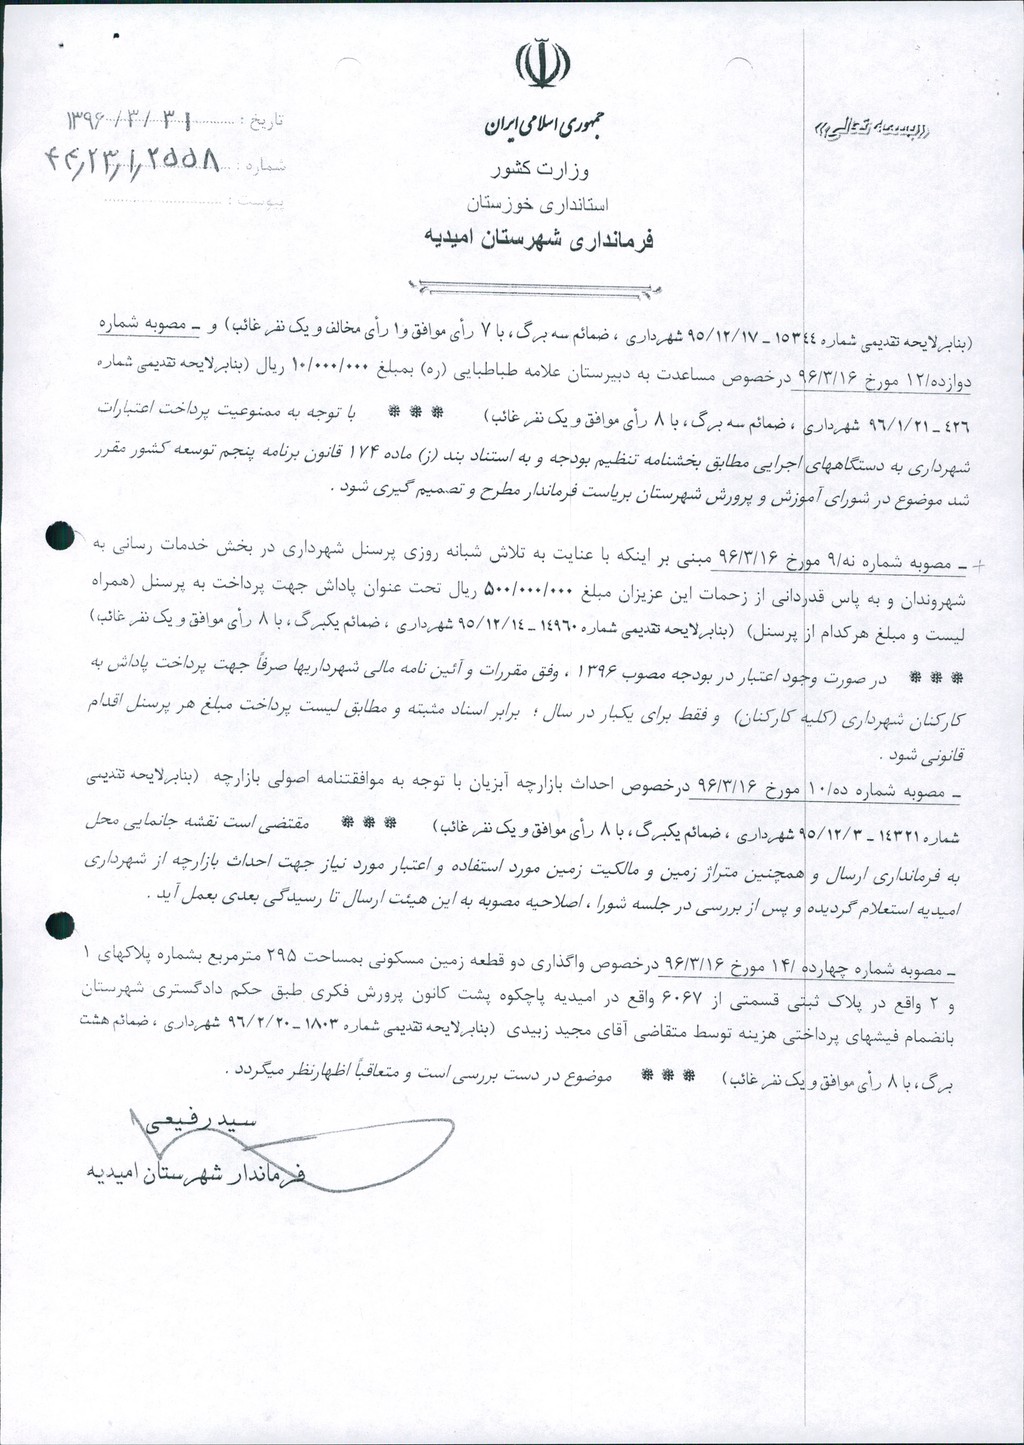 «بسمه تعالی»
جمهوری اسلامی ایران
وزارت کشور
استانداری خوزستان
فرمانداری شهرستان امیدیه
تاریخ : ۱۳۹۶/۳/۳۱
شماره : ۴۴/۲۳/۱/۲۵۵۸
پیوست :
(بنابر لایحه تقدیمی شماره ۱۵۳۴۴ – ۹۵/۱۲/۱۷ شهرداری ، ضمائم سه برگ، با ۷ رأی موافق و ۱ رأی مخالف و یک نفر غائب) و – مصوبه شماره
دوازده/۱۲ مورخ ۹۶/۳/۱۶ درخصوص مساعدت به دبیرستان علامه طباطبایی (ره) بمبلغ ۱۰/۰۰۰/۰۰۰ ریال (بنابر لایحه تقدیمی شماره
۴۲۶ – ۹۶/۱/۲۱ شهرداری ، ضمائم سه برگ، با ۸ رأی موافق و یک نفر غائب) ❋❋❋ با توجه به ممنوعیت پرداخت اعتبارات
شهرداری به دستگاههای اجرایی مطابق بخشنامه تنظیم بودجه و به استناد بند (ز) ماده ۱۷۴ قانون برنامه پنجم توسعه کشور مقرر
شد موضوع در شورای آموزش و پرورش شهرستان بریاست فرماندار مطرح و تصمیم گیری شود .
+ – مصوبه شماره نه/۹ مورخ ۹۶/۳/۱۶ مبنی بر اینکه با عنایت به تلاش شبانه روزی پرسنل شهرداری در بخش خدمات رسانی به
شهروندان و به پاس قدردانی از زحمات این عزیزان مبلغ ۵۰۰/۰۰۰/۰۰۰ ریال تحت عنوان پاداش جهت پرداخت به پرسنل (همراه
لیست و مبلغ هرکدام از پرسنل) (بنابر لایحه تقدیمی شماره ۱۴۹۶۰ – ۹۵/۱۲/۱۴ شهرداری ، ضمائم یکبرگ، با ۸ رأی موافق و یک نفر غائب)
❋❋❋ در صورت وجود اعتبار در بودجه مصوب ۱۳۹۶ ، وفق مقررات و آئین نامه مالی شهرداریها صرفاً جهت پرداخت پاداش به
کارکنان شهرداری (کلیه کارکنان) و فقط برای یکبار در سال ؛ برابر اسناد مثبته و مطابق لیست پرداخت مبلغ هر پرسنل اقدام
قانونی شود .
– مصوبه شماره ده/۱۰ مورخ ۹۶/۳/۱۶ درخصوص احداث بازارچه آبزیان با توجه به موافقتنامه اصولی بازارچه (بنابر لایحه تقدیمی
شماره ۱۴۳۲۱ – ۹۵/۱۲/۳ شهرداری ، ضمائم یکبرگ، با ۸ رأی موافق و یک نفر غائب) ❋❋❋ مقتضی است نقشه جانمایی محل
به فرمانداری ارسال و همچنین متراژ زمین و مالکیت زمین مورد استفاده و اعتبار مورد نیاز جهت احداث بازارچه از شهرداری
امیدیه استعلام گردیده و پس از بررسی در جلسه شورا ، اصلاحیه مصوبه به این هیئت ارسال تا رسیدگی بعدی بعمل آید .
– مصوبه شماره چهارده /۱۴ مورخ ۹۶/۳/۱۶ درخصوص واگذاری دو قطعه زمین مسکونی بمساحت ۲۹۵ مترمربع بشماره پلاکهای ۱
و ۲ واقع در پلاک ثبتی قسمتی از ۶۰۶۷ واقع در امیدیه پاچکوه پشت کانون پرورش فکری طبق حکم دادگستری شهرستان
بانضمام فیشهای پرداختی هزینه توسط متقاضی آقای مجید زبیدی (بنابر لایحه تقدیمی شماره ۱۸۰۳ – ۹۶/۲/۲۰ شهرداری ، ضمائم هشت
برگ، با ۸ رأی موافق و یک نفر غائب) ❋❋❋ موضوع در دست بررسی است و متعاقباً اظهارنظر میگردد .
سید رفیعی
فرماندار شهرستان امیدیه